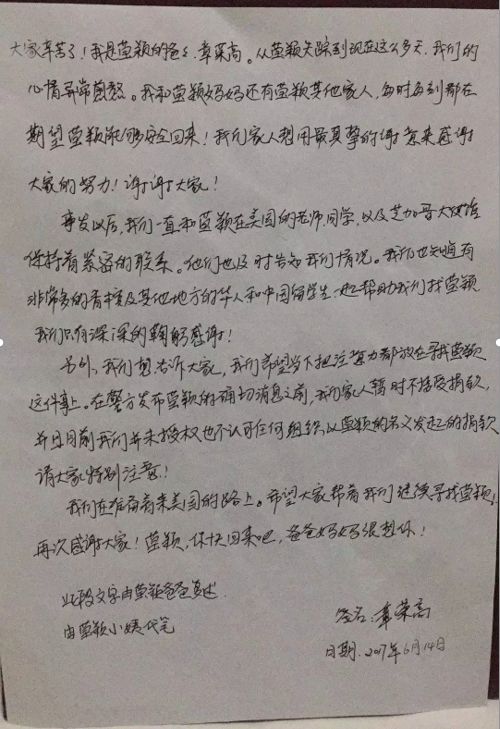 大家辛苦了！我是莹颖的爸爸章荣高。从莹颖失踪到现在这么多天，我们的
心情异常煎熬。我和莹颖妈妈还有莹颖其他家人，每时每刻都在
期望莹颖能够安全回来！我们家人想用最真挚的谢意来感谢
大家的努力！谢谢大家！
事发以后，我们一直和莹颖在美国的老师、同学，以及芝加哥大使馆
保持着紧密的联系。他们也及时告知我们情况。我们也知道有
非常多的香槟及其他地方的华人和中国留学生帮助我们找莹颖
我们只有深深的鞠躬感谢！
另外，我们想告诉大家，我们希望当下把注意力都放在寻找莹颖
这件事上。在警方发布莹颖的确切消息之前，我们家人暂时不接受捐款，
并且目前我们并未授权也不认可任何组织以莹颖的名义发起的捐款
请大家特别注意！
我们在准备着来美国的路上。希望大家帮着我们继续寻找莹颖！
再次感谢大家！莹颖，你快回来吧，爸爸妈妈很想你！
此段文字由莹颖爸爸口述
由莹颖小姨代笔
签名：章荣高
日期：2017年6月14日